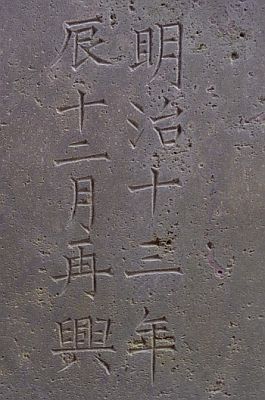 明治十三年
辰十二月再興